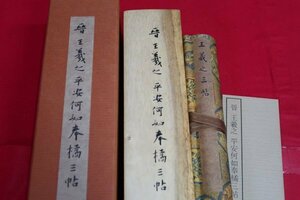 晉王羲之平安何如奉橘三帖
晉王羲之平安何如奉橘三帖
王羲之三帖
晉 王羲之 平安何如奉橘三帖